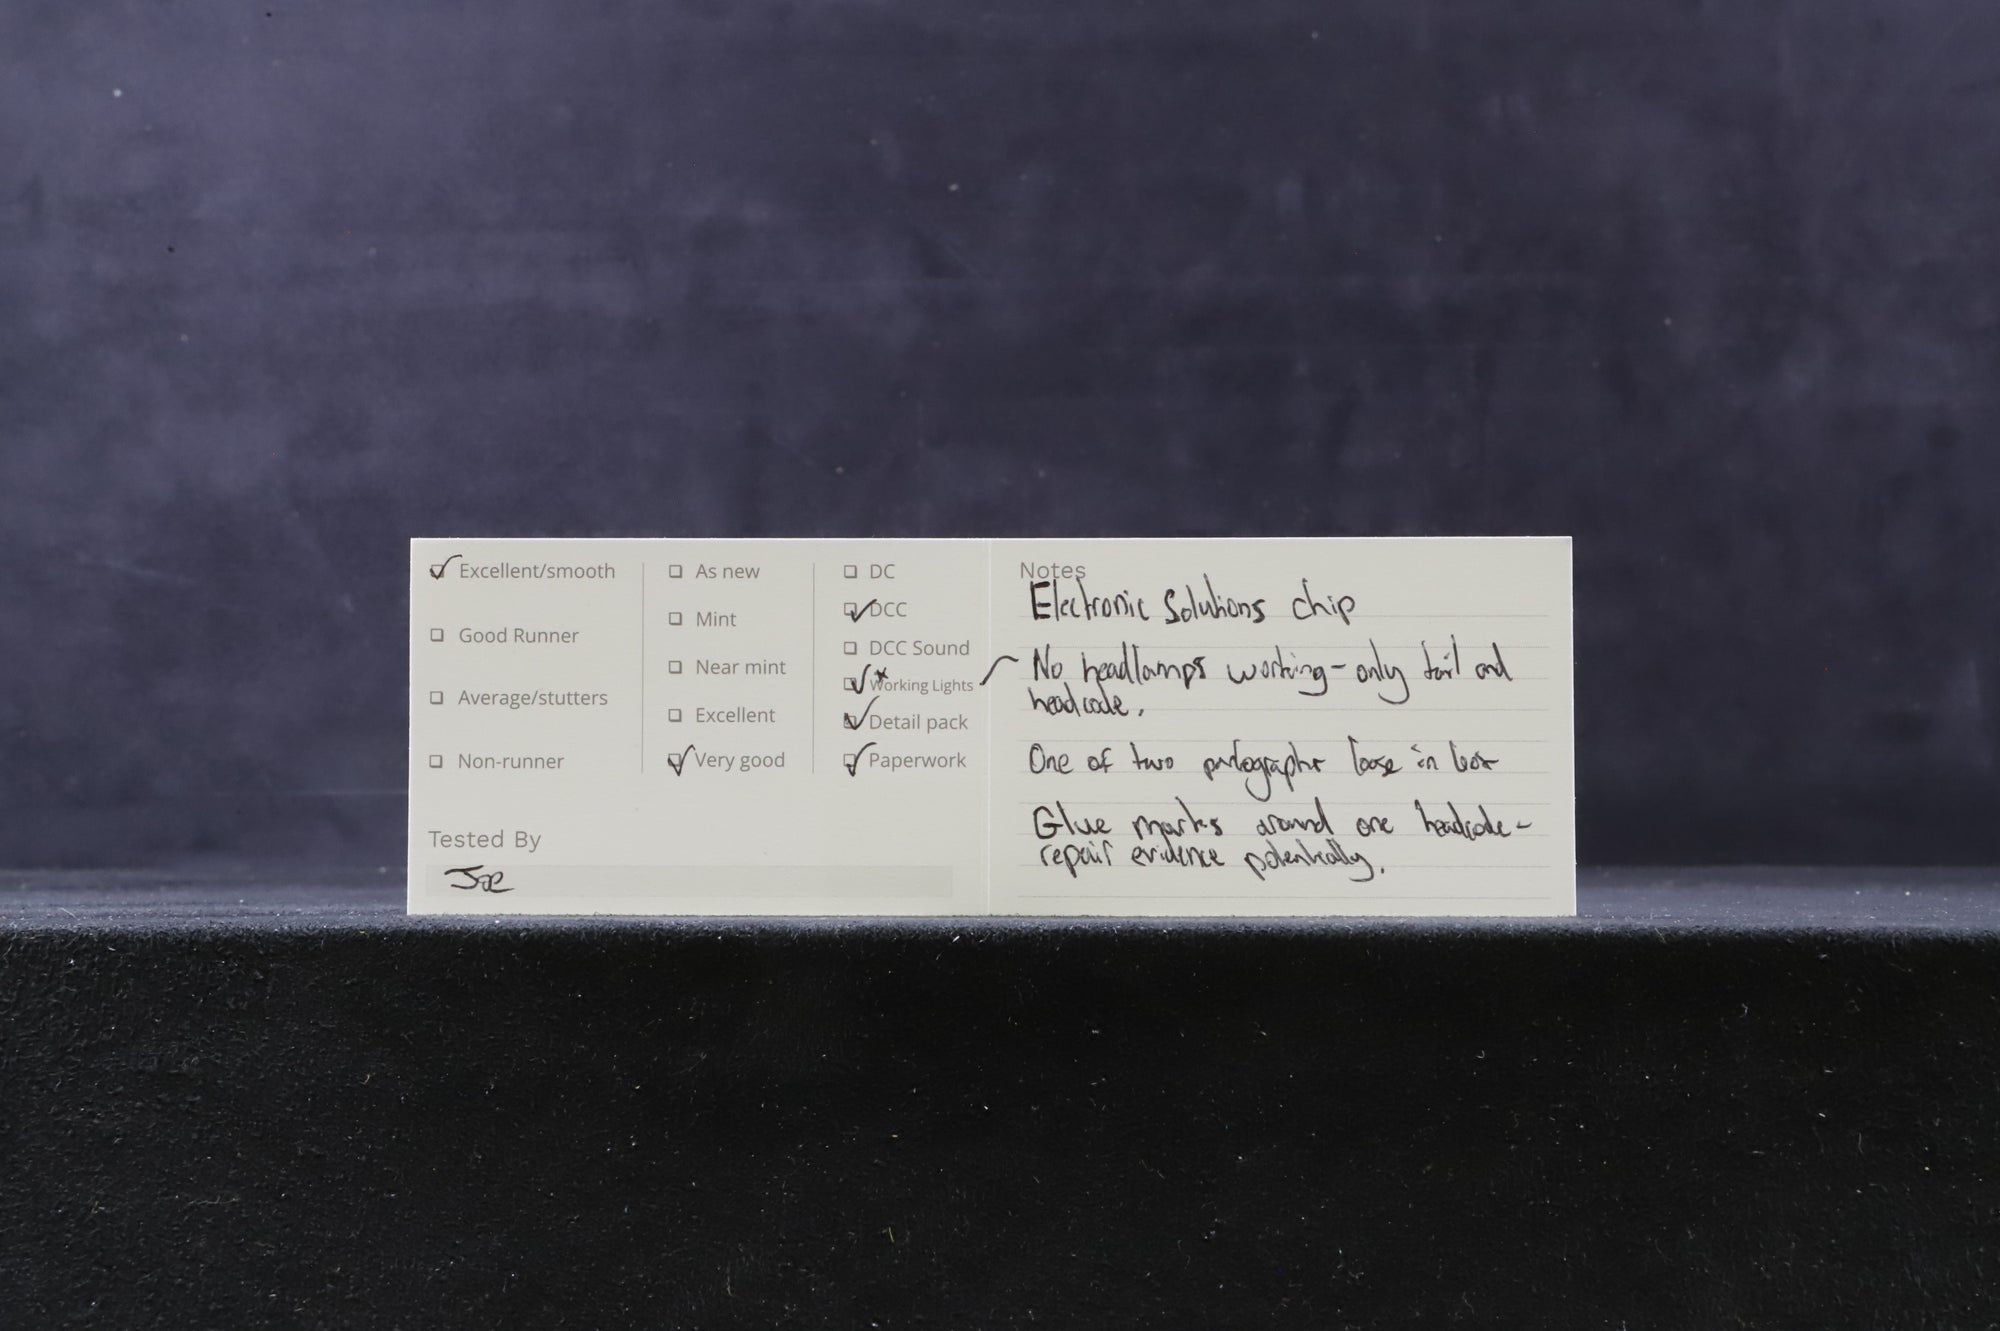 Excellent/smooth
Good Runner
Average/stutters
Non-runner
As new
Mint
Near mint
Excellent
Very good
DC
DCC
DCC Sound
Working Lights
Detail pack
Paperwork
Tested By
Joe
Notes
Electronic Solutions chip
No headlamps working - only tail and
headcode.
One of two pantographs loose in box
Glue marks around one headcode -
repair evidence potentially.